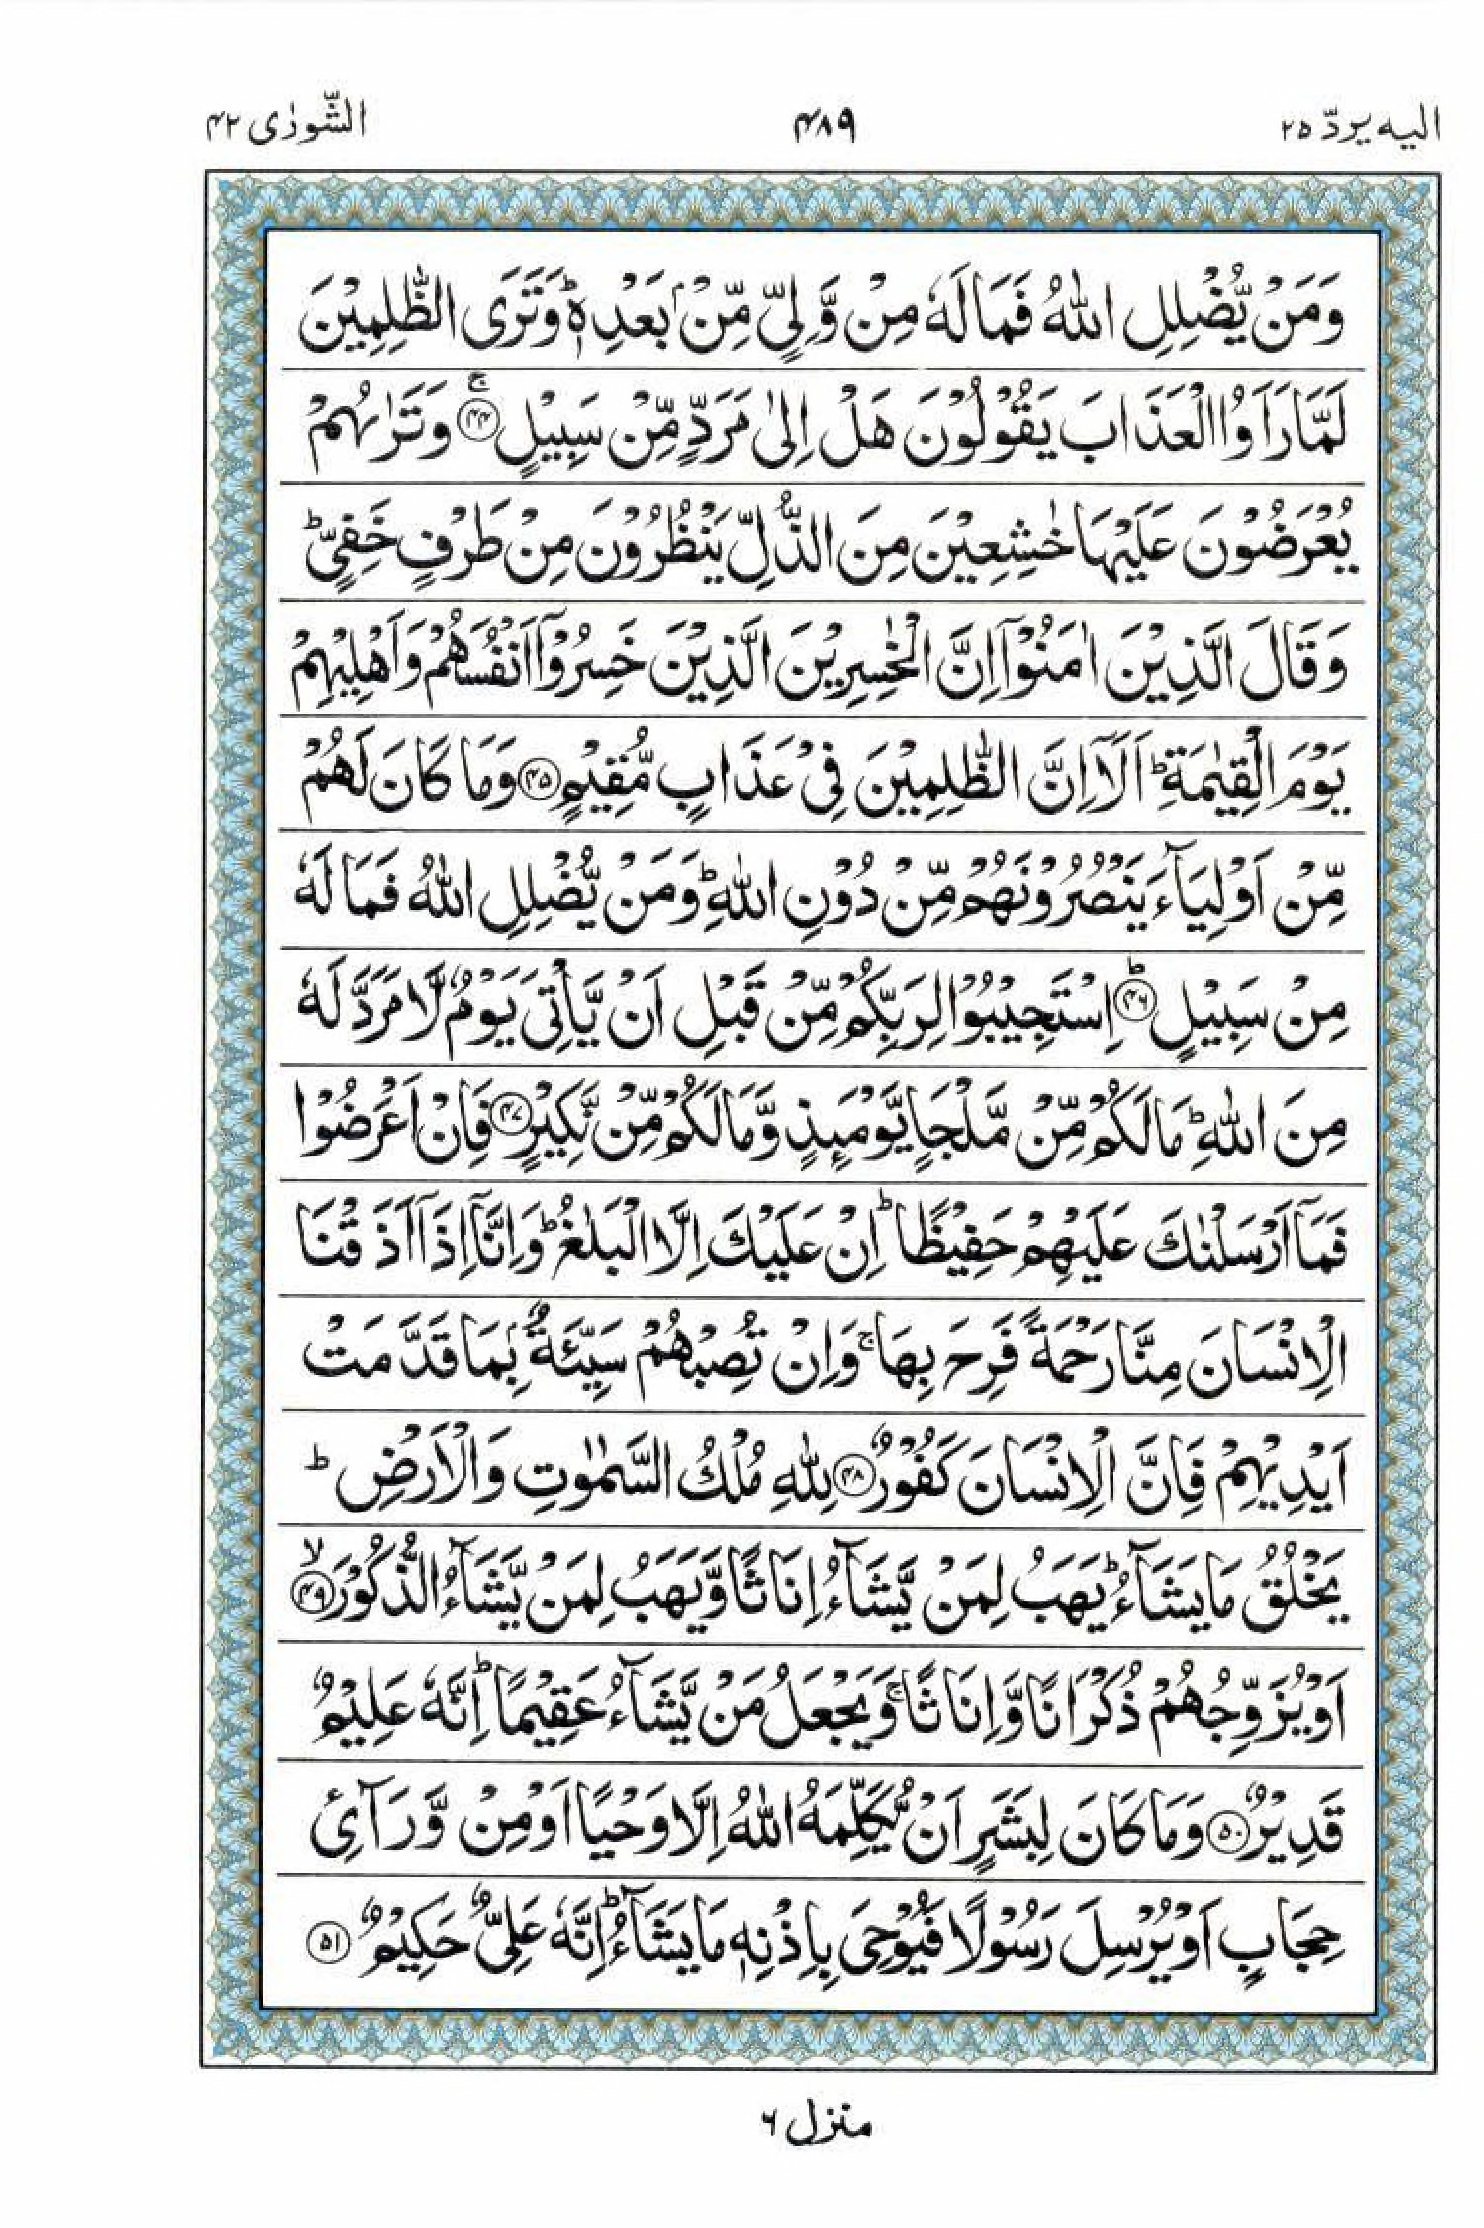 الیه یردّ ۲۵
۴۸۹
الشّورٰی ۴۲
وَمَنْ يُّضْلِلِ اللّٰهُ فَمَا لَهٗ مِنْ وَّلِيٍّ مِّنْۢ بَعْدِهٖ ؕ وَتَرَى الظّٰلِمِيْنَ
لَمَّا رَاَوُا الْعَذَابَ يَقُوْلُوْنَ هَلْ اِلٰى مَرَدٍّ مِّنْ سَبِيْلٍ ۚ‏﴿۴۴﴾ وَتَرٰىهُمْ
يُعْرَضُوْنَ عَلَيْهَا خٰشِعِيْنَ مِنَ الذُّلِّ يَنْظُرُوْنَ مِنْ طَرْفٍ خَفِيٍّ ؕ
وَقَالَ الَّذِيْنَ اٰمَنُوْۤا اِنَّ الْخٰسِرِيْنَ الَّذِيْنَ خَسِرُوْۤا اَنْفُسَهُمْ وَاَهْلِيْهِمْ
يَوْمَ الْقِيٰمَةِ ؕ اَلَاۤ اِنَّ الظّٰلِمِيْنَ فِيْ عَذَابٍ مُّقِيْمٍ ﴿۴۵﴾ وَمَا كَانَ لَهُمْ
مِّنْ اَوْلِيَآءَ يَنْصُرُوْنَهُمْ مِّنْ دُوْنِ اللّٰهِ ؕ وَمَنْ يُّضْلِلِ اللّٰهُ فَمَا لَهٗ
مِنْ سَبِيْلٍ ؕ﴿۴۶﴾ اِسْتَجِيْبُوْا لِرَبِّكُمْ مِّنْ قَبْلِ اَنْ يَّاْتِيَ يَوْمٌ لَّا مَرَدَّ لَهٗ
مِنَ اللّٰهِ ؕ مَا لَكُمْ مِّنْ مَّلْجَاٍ يَّوْمَىِٕذٍ وَّمَا لَكُمْ مِّنْ نَّكِيْرٍ ﴿۴۷﴾ فَاِنْ اَعْرَضُوْا
فَمَاۤ اَرْسَلْنٰكَ عَلَيْهِمْ حَفِيْظًا ؕ اِنْ عَلَيْكَ اِلَّا الْبَلٰغُ ؕ وَاِنَّاۤ اِذَاۤ اَذَقْنَا
الْاِنْسَانَ مِنَّا رَحْمَةً فَرِحَ بِهَا ۚ وَاِنْ تُصِبْهُمْ سَيِّئَةٌۢ بِمَا قَدَّمَتْ
اَيْدِيْهِمْ فَاِنَّ الْاِنْسَانَ كَفُوْرٌ ﴿۴۸﴾ لِلّٰهِ مُلْكُ السَّمٰوٰتِ وَالْاَرْضِ ؕ
يَخْلُقُ مَا يَشَآءُ ؕ يَهَبُ لِمَنْ يَّشَآءُ اِنَاثًا وَّيَهَبُ لِمَنْ يَّشَآءُ الذُّكُوْرَ ۙ﴿۴۹﴾
اَوْ يُزَوِّجُهُمْ ذُكْرَانًا وَّاِنَاثًا ۚ وَيَجْعَلُ مَنْ يَّشَآءُ عَقِيْمًا ؕ اِنَّهٗ عَلِيْمٌ
قَدِيْرٌ ﴿۵۰﴾ وَمَا كَانَ لِبَشَرٍ اَنْ يُّكَلِّمَهُ اللّٰهُ اِلَّا وَحْيًا اَوْ مِنْ وَّرَآئِ
حِجَابٍ اَوْ يُرْسِلَ رَسُوْلًا فَيُوْحِيَ بِاِذْنِهٖ مَا يَشَآءُ ؕ اِنَّهٗ عَلِيٌّ حَكِيْمٌ ﴿۵۱﴾
منزل ۶